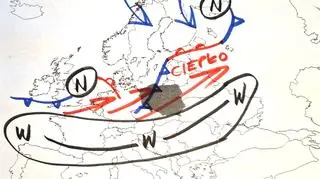 N
N
CIEPŁO
W
W
W